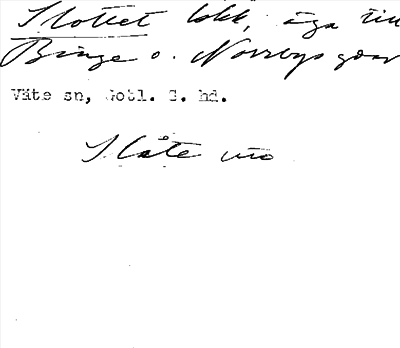 Slottet lokk, äga till
Binge o. Norrbys gdar
Väte sn, Gotl. S. hd.
Slåte mo